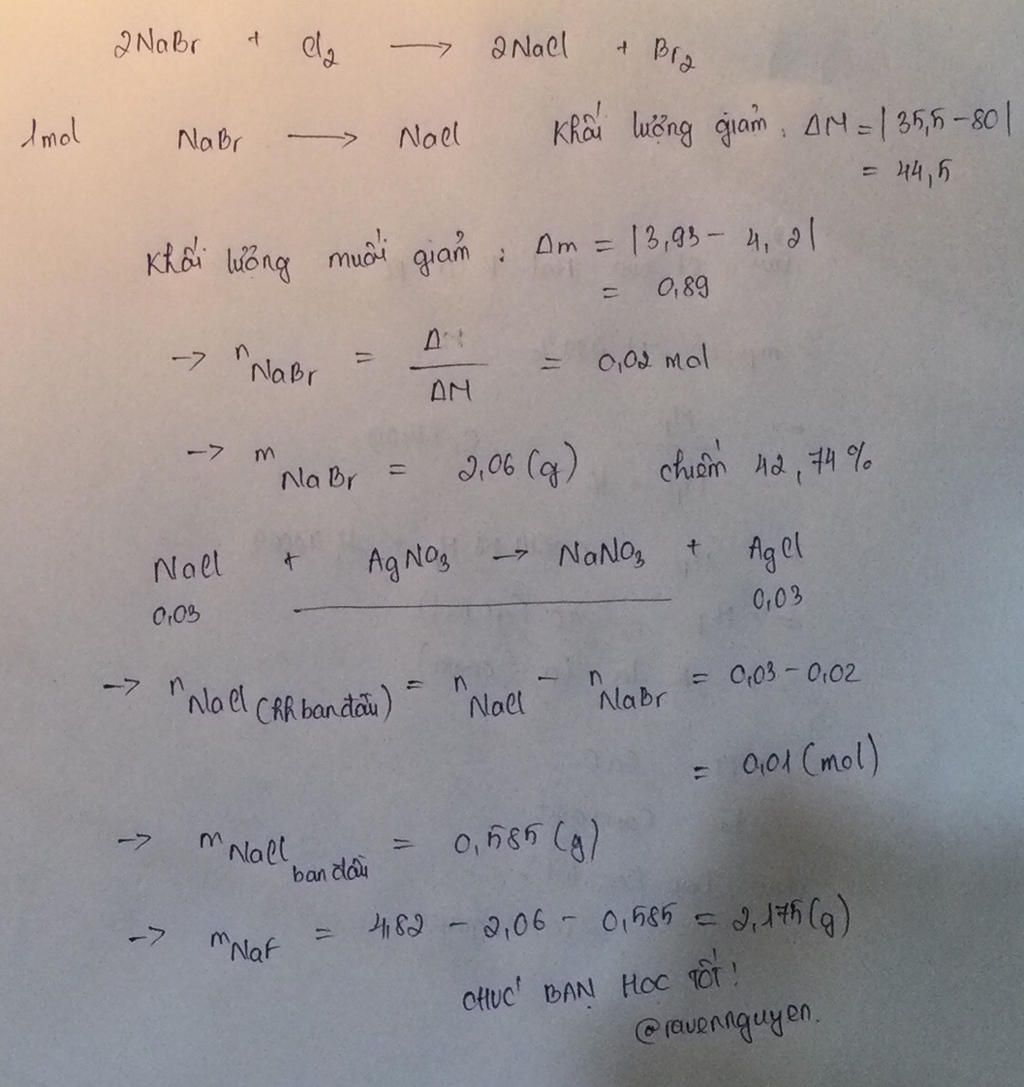 2NaBr + Cl2 → 2NaCl + Br2
1mol NaBr → NaCl Khối lượng giảm: ΔM = |35,5-80|
= 44,5
Khối lượng muối giảm: Δm = |3,93 - 4,2|
= 0,89
→ nNaBr = Δ / ΔM = 0,02 mol
→ mNaBr = 2,06 (g) chiếm 42,74%
NaCl + AgNO3 → NaNO3 + AgCl
0,03 0,03
→ nNaCl (RR ban đầu) = nNaCl - nNaBr = 0,03 - 0,02
= 0,01 (mol)
→ mNaCl ban đầu = 0,585 (g)
→ mNaF = 4,82 - 2,06 - 0,585 = 2,175 (g)
CHÚC BẠN HỌC TỐT!
@ravennguyen.